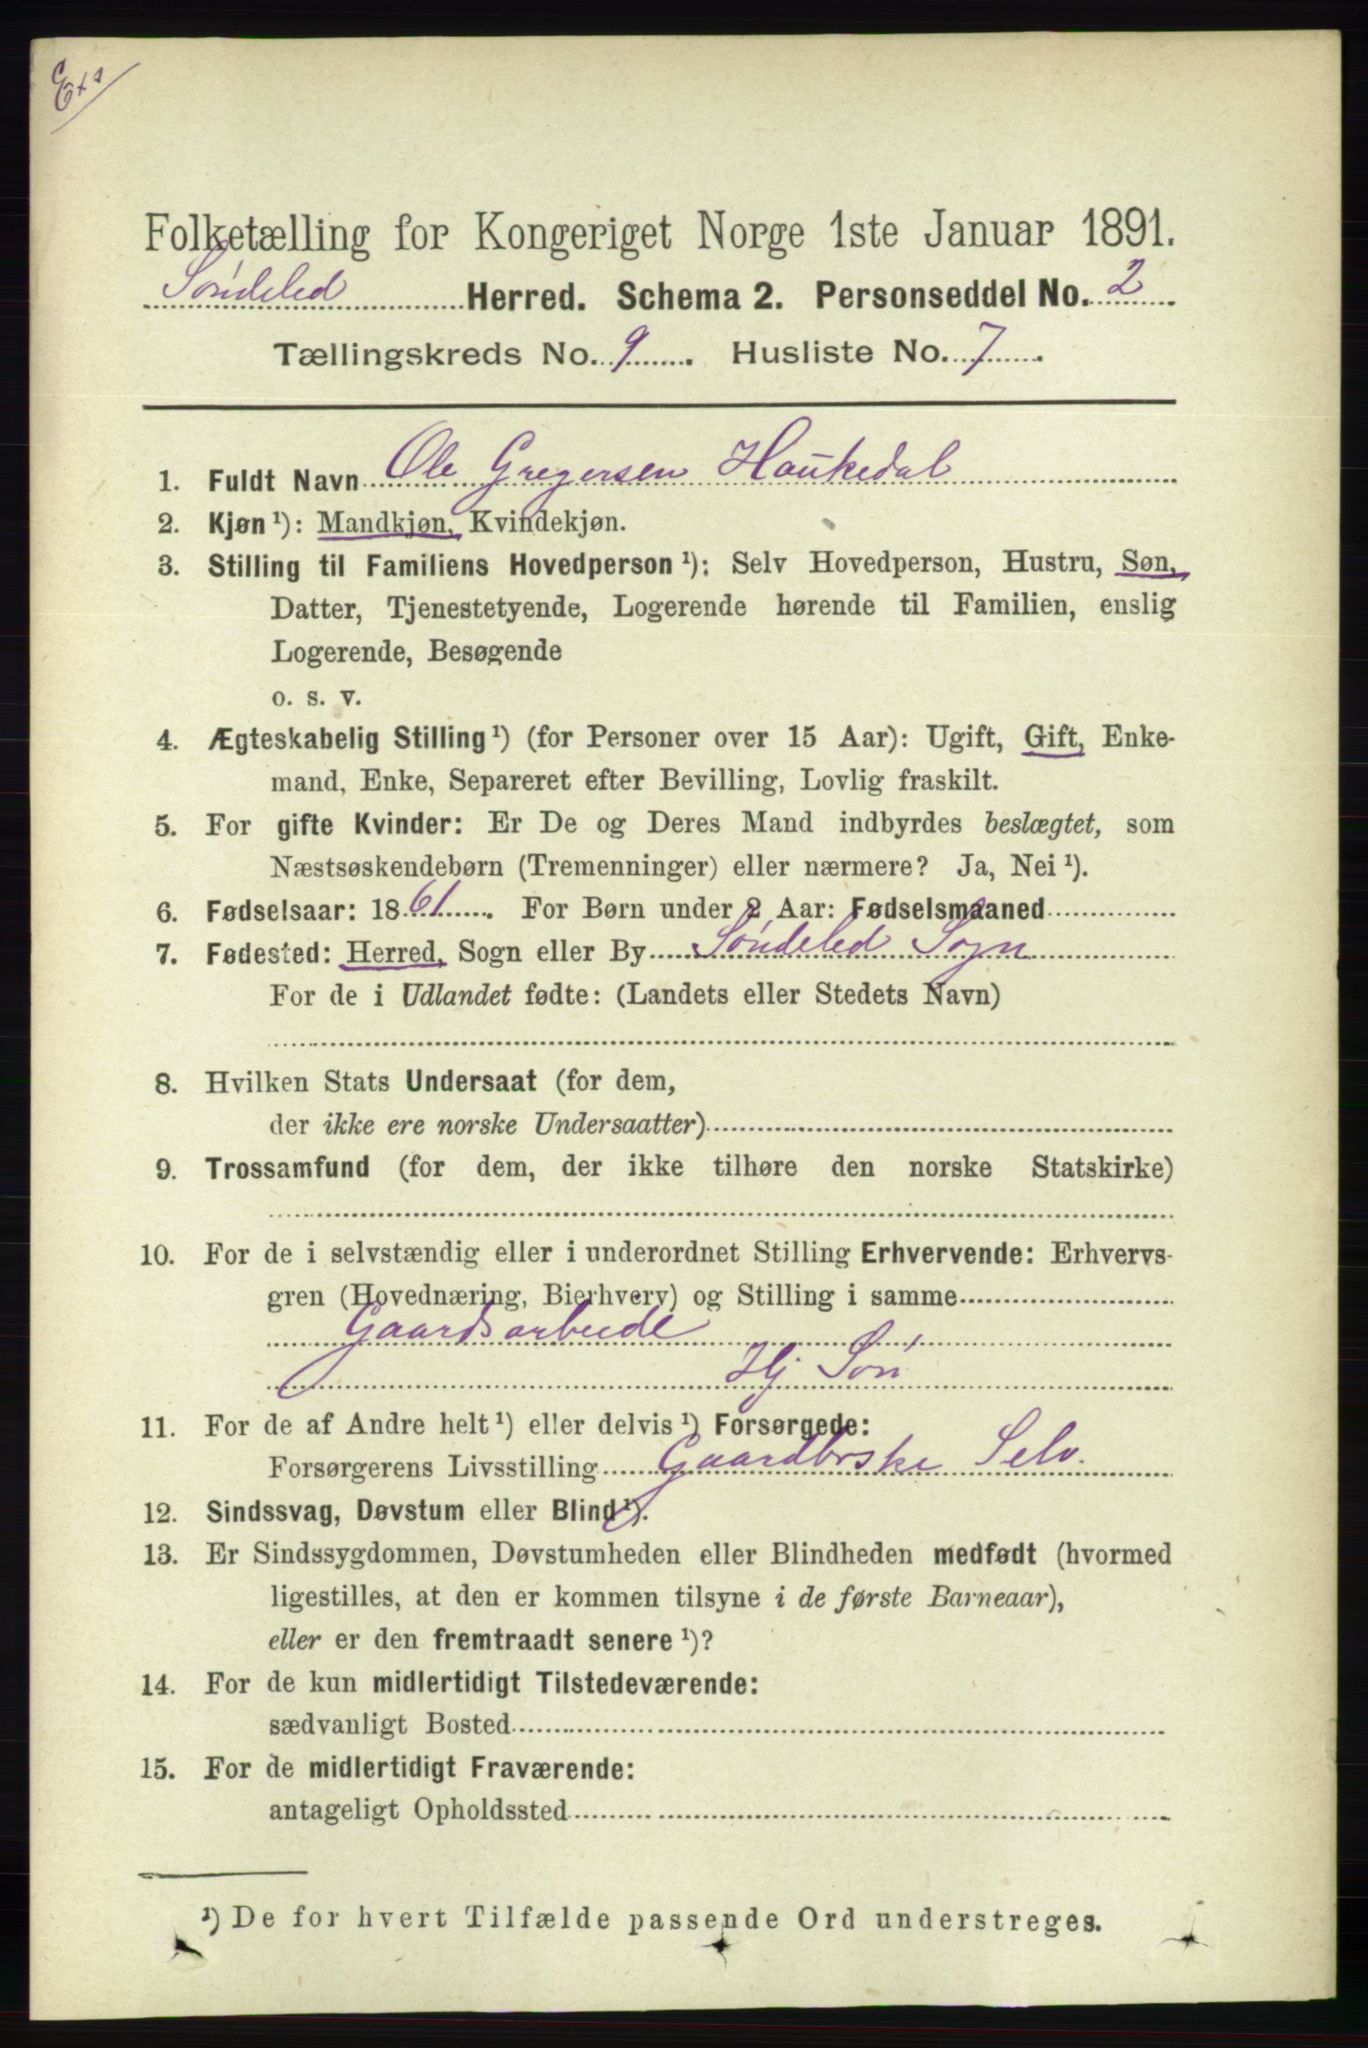 Exs
Folketælling for Kongeriget Norge 1ste Januar 1891.
Søndeled Herred. Schema 2. Personseddel No. 2
Tællingskreds No. 9. Husliste No. 7.
1. Fuldt Navn Ole Gregersen Haukedal
2. Kjøn ¹): Mandkjøn, Kvindekjøn.
3. Stilling til Familiens Hovedperson ¹): Selv Hovedperson, Hustru, Søn,
Datter, Tjenestetyende, Logerende hørende til Familien, enslig
Logerende, Besøgende
o. s. v.
4. Ægteskabelig Stilling ¹) (for Personer over 15 Aar): Ugift, Gift, Enke-
mand, Enke, Separeret efter Bevilling, Lovlig fraskilt.
5. For gifte Kvinder: Er De og Deres Mand indbyrdes beslægtet, som
Næstsøskendebørn (Tremenninger) eller nærmere? Ja, Nei ¹).
6. Fødselsaar: 1861. For Børn under 2 Aar: Fødselsmaaned
7. Fødested: Herred, Sogn eller By Søndeled Sogn
For de i Udlandet fødte: (Landets eller Stedets Navn)
8. Hvilken Stats Undersaat (for dem,
der ikke ere norske Undersaatter)
9. Trossamfund (for dem, der ikke tilhøre den norske Statskirke)
10. For de i selvstændig eller i underordnet Stilling Erhvervende: Erhvervs-
gren (Hovednæring, Bierhverv) og Stilling i samme
Gaardsarbeide
Hj Søn
11. For de af Andre helt ¹) eller delvis ¹) Forsørgede:
Forsørgerens Livsstilling Selv.
12. Sindssvag, Døvstum eller Blind ¹).
13. Er Sindssygdommen, Døvstumheden eller Blindheden medfødt (hvormed
ligestilles, at den er kommen tilsyne i de første Barneaar),
eller er den fremtraadt senere ¹)?
14. For de kun midlertidigt Tilstedeværende:
sædvanligt Bosted
15. For de midlertidigt Fraværende:
antageligt Opholdssted
¹) De for hvert Tilfælde passende Ord understreges.